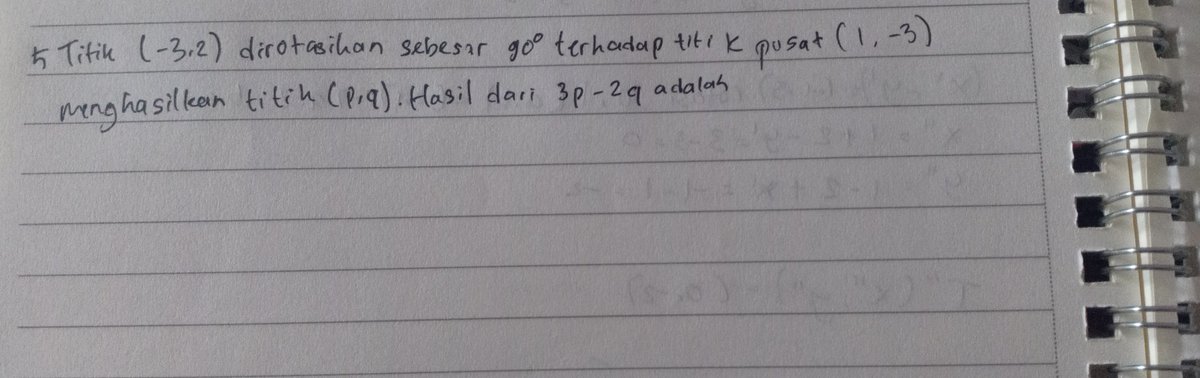 5 Titik (-3,2) dirotasikan sebesar 90° terhadap titik pusat (1, -3)
menghasilkan titik (p,q). Hasil dari 3p - 2q adalah